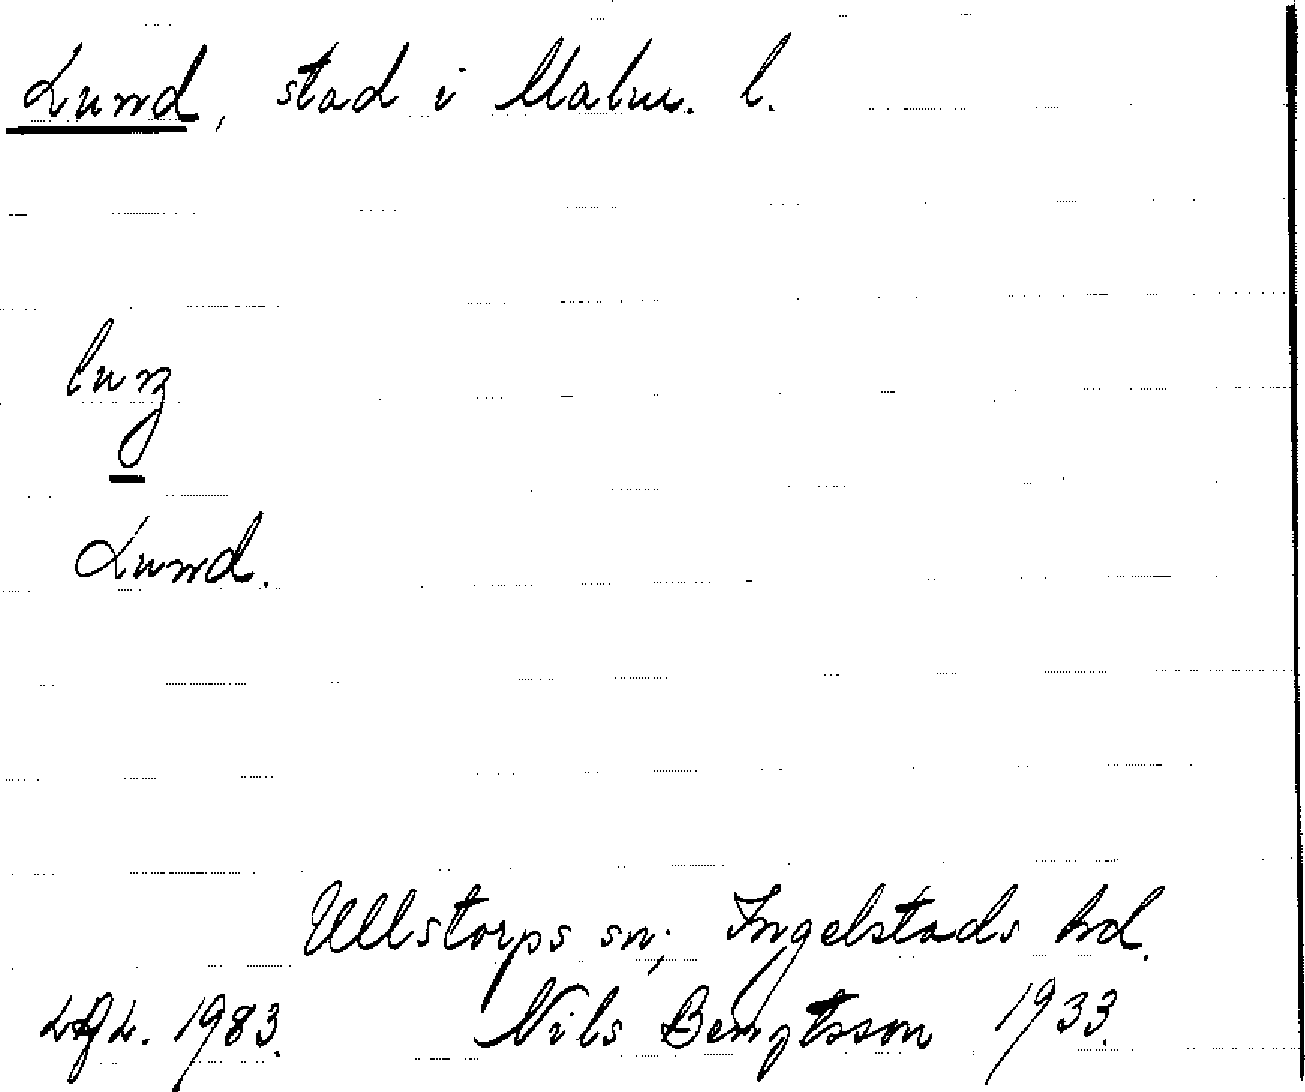 Lund, stad i Malm. l.
Lund.
Ullstorps sn; Ingelstads hd.
1983. Nils Bengtsson 1933.